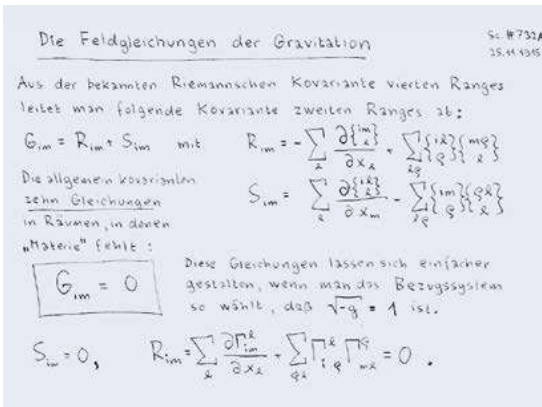 Die Feldgleichungen der Gravitation
25.11.1915
Aus der bekannten Riemannschen Kovariante vierten Ranges
leitet man folgende Kovariante zweiten Ranges ab:
G_im = R_im + S_im mit R_im = - ∑_l ∂{im l}/∂x_l + ∑_lρ {il ρ}{mρ l}
Die allgemein kovarianten S_im = ∑_l ∂{il l}/∂x_m - ∑_lρ {im ρ}{ρl l}
zehn Gleichungen
in Räumen, in denen
„Materie" fehlt :
G_im = 0
Diese Gleichungen lassen sich einfacher
gestalten, wenn man das Bezugssystem
so wählt, daß √-g = 1 ist.
S_im = 0, R_im = ∑_l ∂Γ^l_im/∂x_l + ∑_ρl Γ^l_iρ Γ^ρ_ml = 0 .